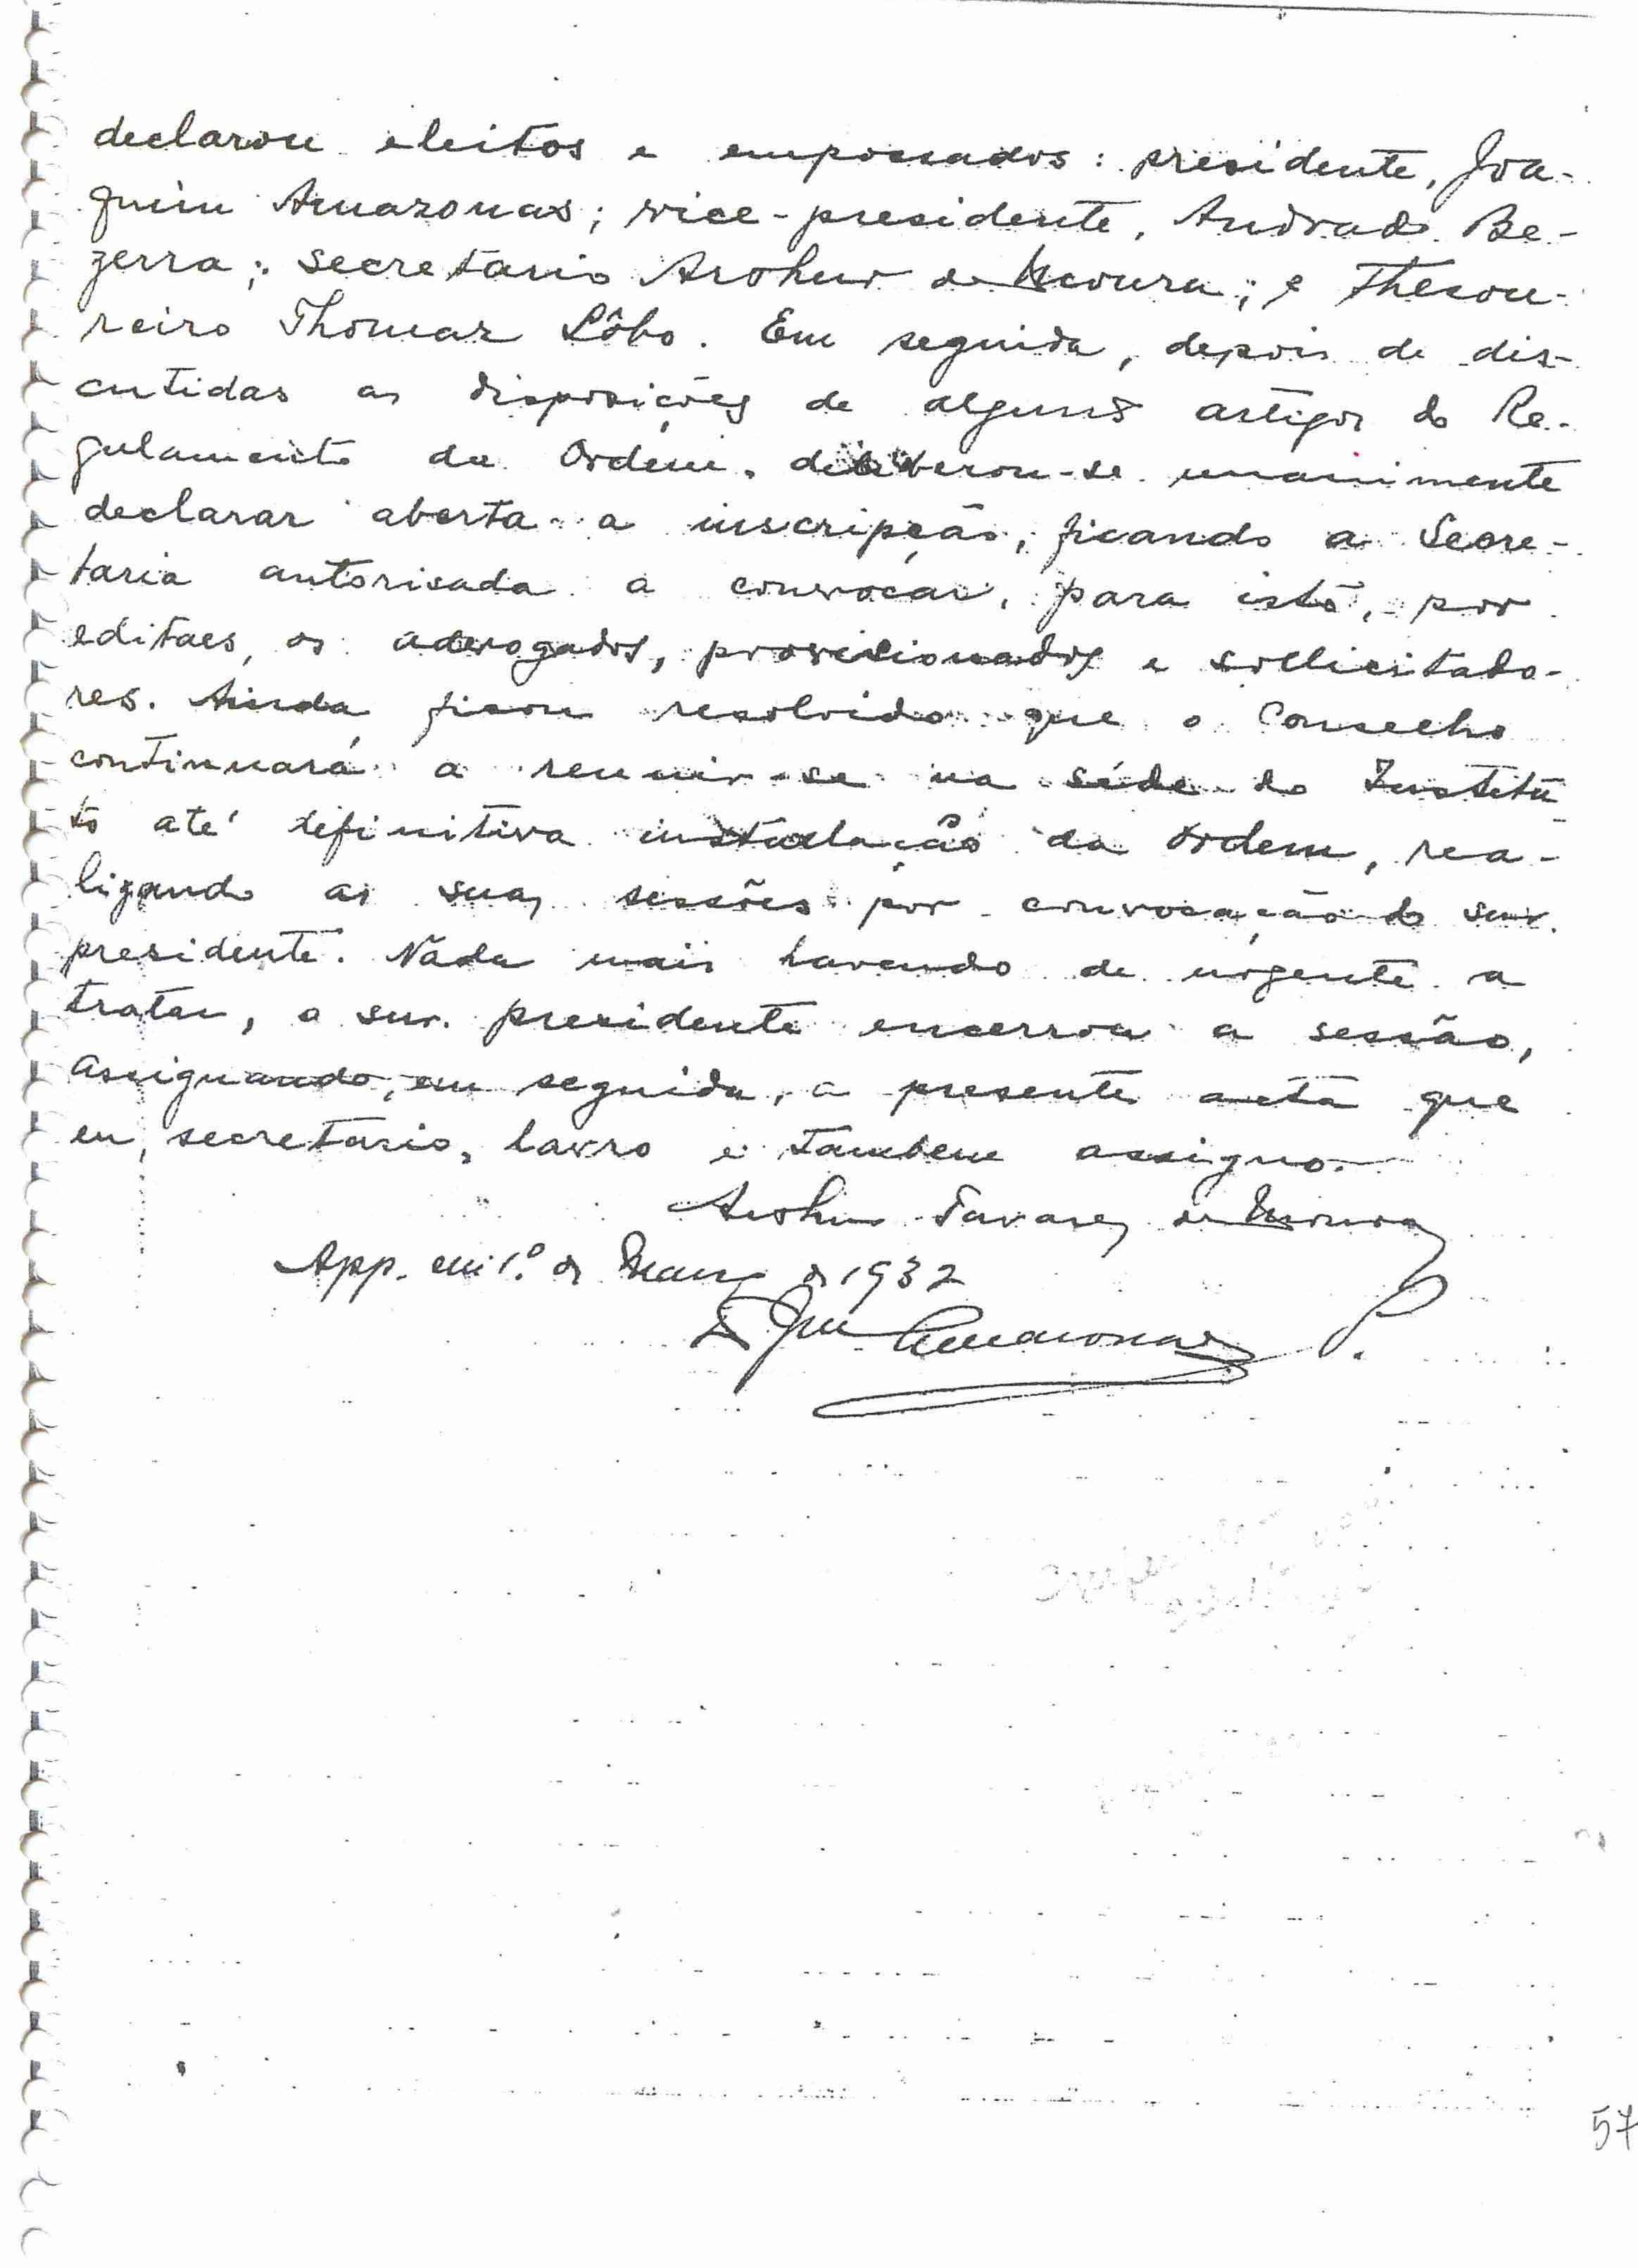 declarou eleitos e empossados: presidente, Joa-
quim Amazonas; vice-presidente, Andrade Be-
zerra; secretario Arthur de Moura; e Thesou-
reiro Thomaz Lôbo. Em seguida, depois de dis-
cutidas as disposições de alguns artigos do Re-
gulamento da Ordem, deliberou-se unanimente
declarar aberta a inscripção, ficando a Secre-
taria autorisada a convocar, para isto, por
editaes, os advogados, provisionados e sollicitado-
res. Ainda ficou resolvido que o Conselho
continuará a reunir-se na séde do Institu-
to até definitiva installação da Ordem, rea-
lizando as suas sessões por convocação do snr.
presidente. Nada mais havendo de urgente a
tratar, o snr. presidente encerrou a sessão,
assignando, em seguida, a presente acta que
eu, secretario, lavro e tambem assigno.
Arthur Tavares de Moura
App. em 1.º de Março de 1932
Jm Amazonas P.
57